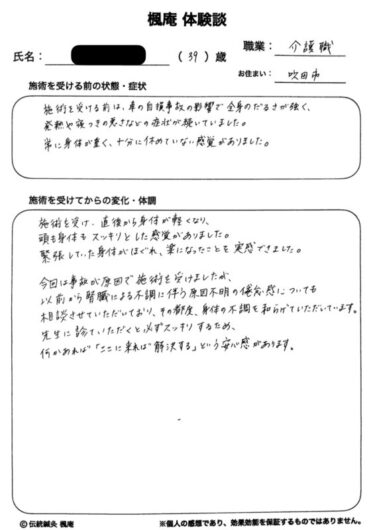 楓庵 体験談
氏名： （39）歳
職業： 介護職
お住まい： 吹田市
施術を受ける前の状態・症状
施術を受ける前は、車の自損事故の影響で全身のだるさが強く、
発熱や寝つきの悪さなどの症状が続いていました。
常に身体が重く、十分に休めていない感覚がありました。
施術を受けてからの変化・体調
施術を受け、直後から身体が軽くなり、
頭も身体もスッキリとした感覚がありました。
緊張していた身体がほぐれ、楽になったことを実感できました。
今回は事故が原因で施術を受けましたが、
以前から腎臓による不調に伴う原因不明の倦怠感についても
相談させていただいており、その都度、身体の不調を和らげていただいています。
先生に診ていただくと必ずスッキリするため、
何かあれば「ここに来れば解決する」という安心感があります。
© 伝統鍼灸 楓庵
※個人の感想であり、効果効能を保証するものではありません。